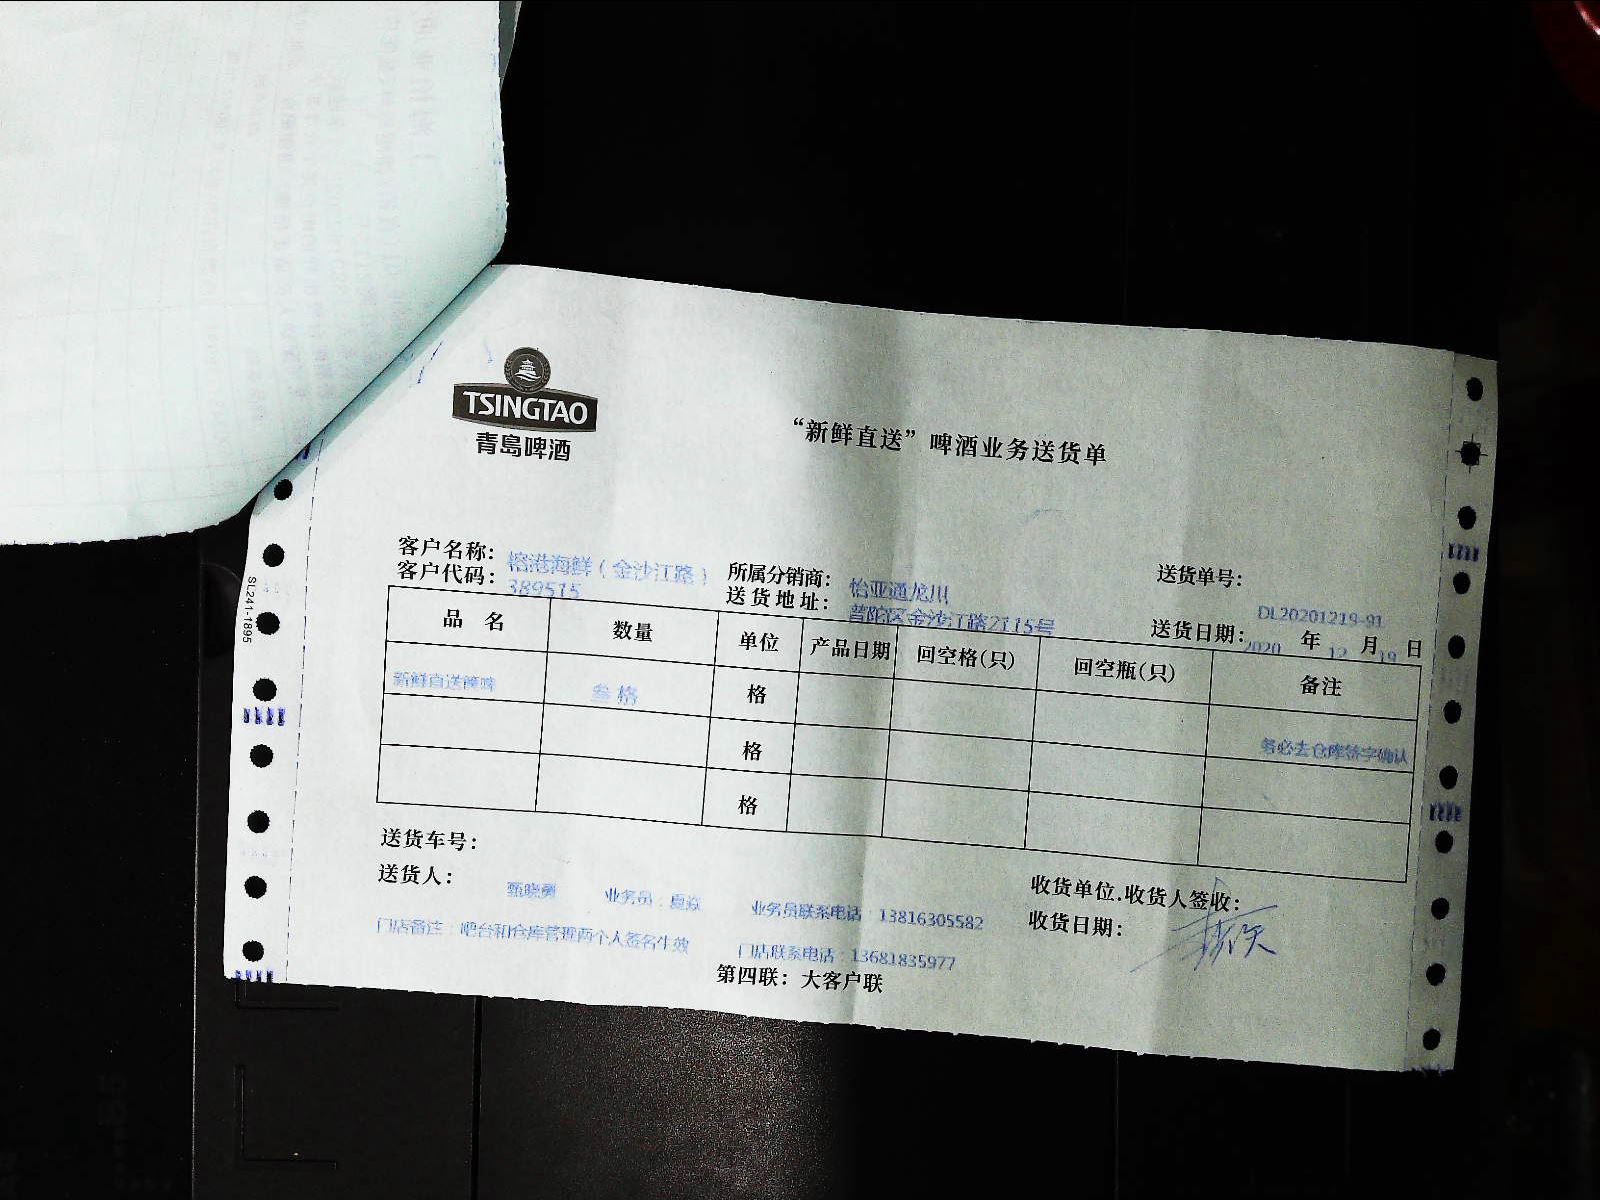 TSINGTAO
青島啤酒
“新鲜直送”啤酒业务送货单
客户名称：榕港海鲜（金沙江路） 所属分销商：怡亚通龙川 送货单号：DL20201219-91
客户代码：389515 送货地址：普陀区金沙江路2115号 送货日期：2020年12月19日
品 名 数量 单位 产品日期 回空格(只) 回空瓶(只) 备注
新鲜直送 叁格 格
格 务必去仓库签字确认
格
送货车号：
送货人：甄晓勇 业务员：夏焱 业务员联系电话：13816305582 收货单位.收货人签收：
门店备注：吧台和仓库管理两个人签名生效 门店联系电话：13681835977 收货日期：
第四联：大客户联
SL241-1895